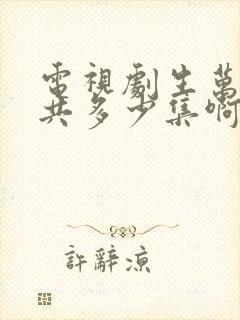 電視劇生萬
共多少集啊
許辭涼